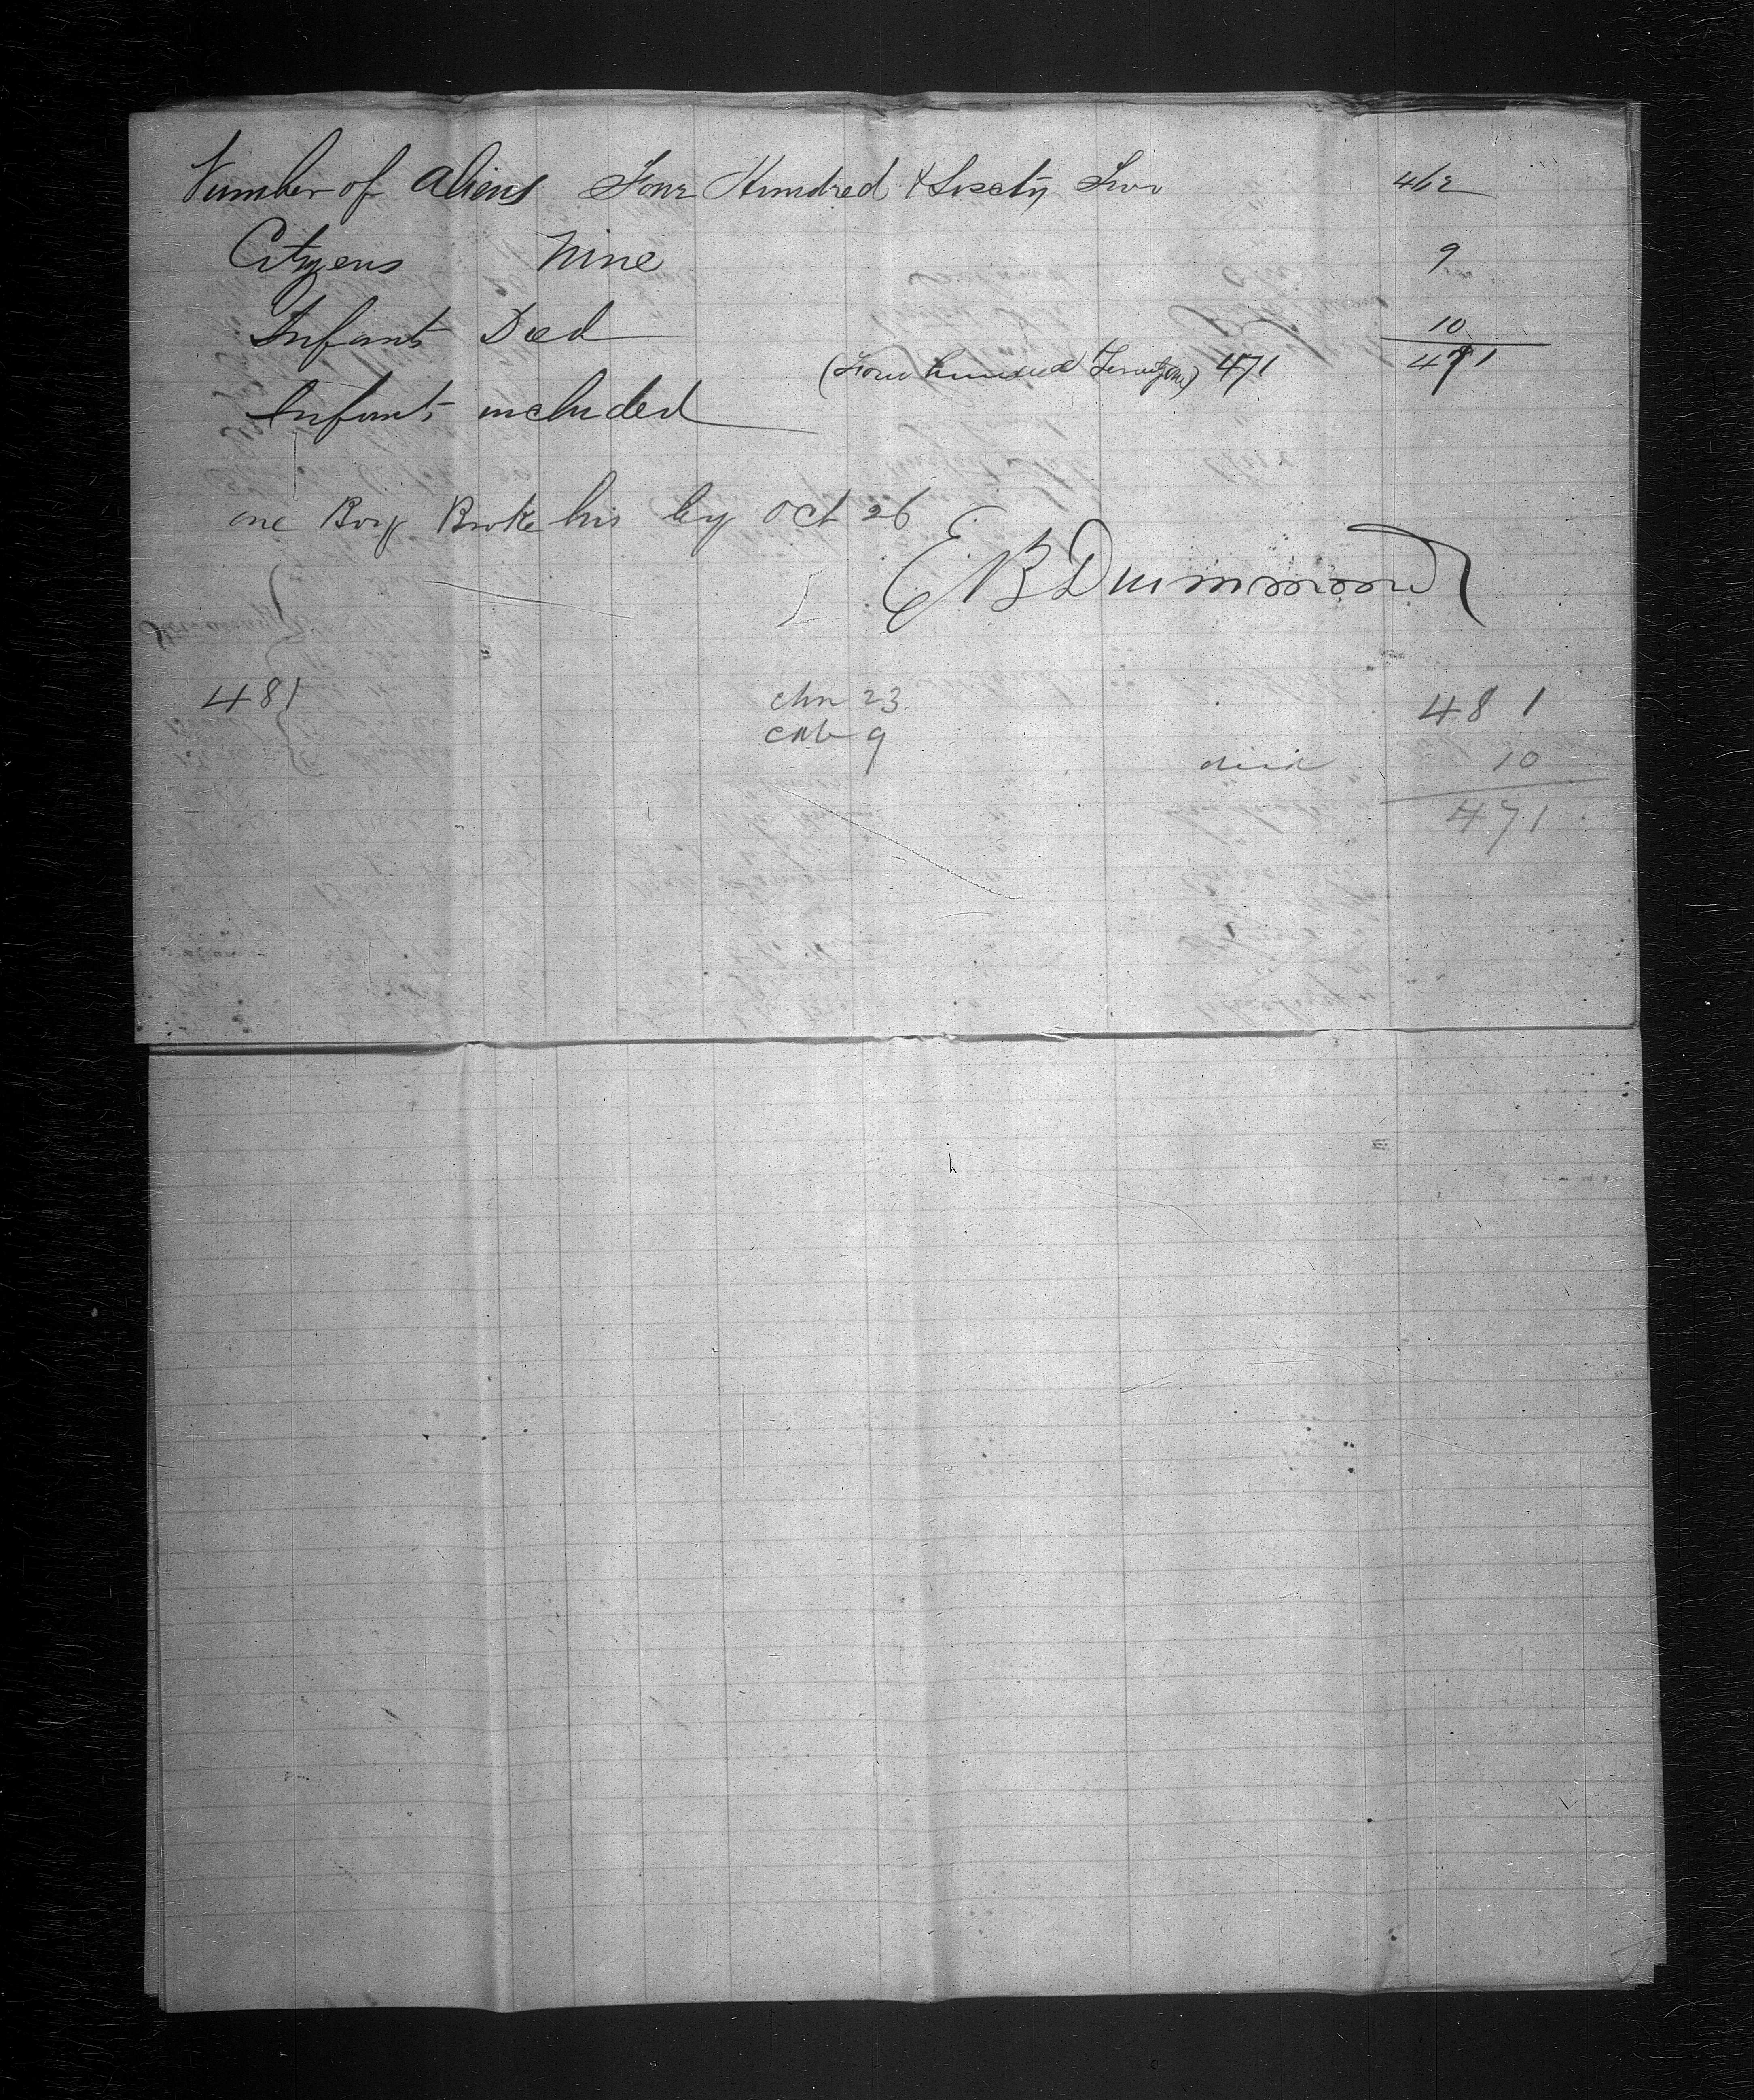 Number of Aliens Four Hundred & Sixcty Two 462
Cityzens Nine 9
Infants Died 10
(Four hundred Seventyone) 471 471
Infants included
one Boy Broke his leg Oct 26
E B Drummond
481 chn 23 481
cab 9
died 10
471